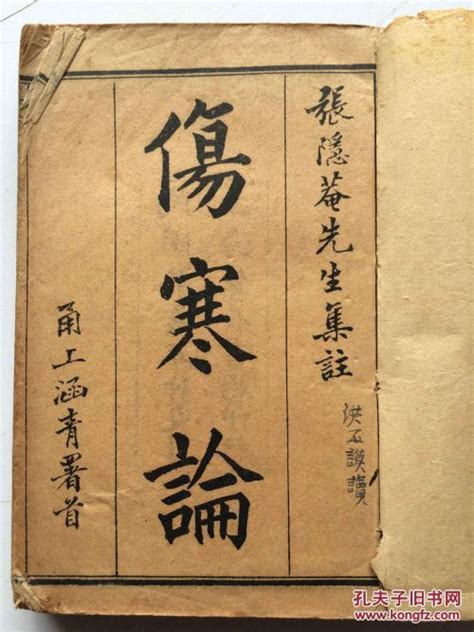 張隱菴先生集註
洪石讀
傷寒論
甬上涵青署首
孔夫子旧书网
www.kongfz.com